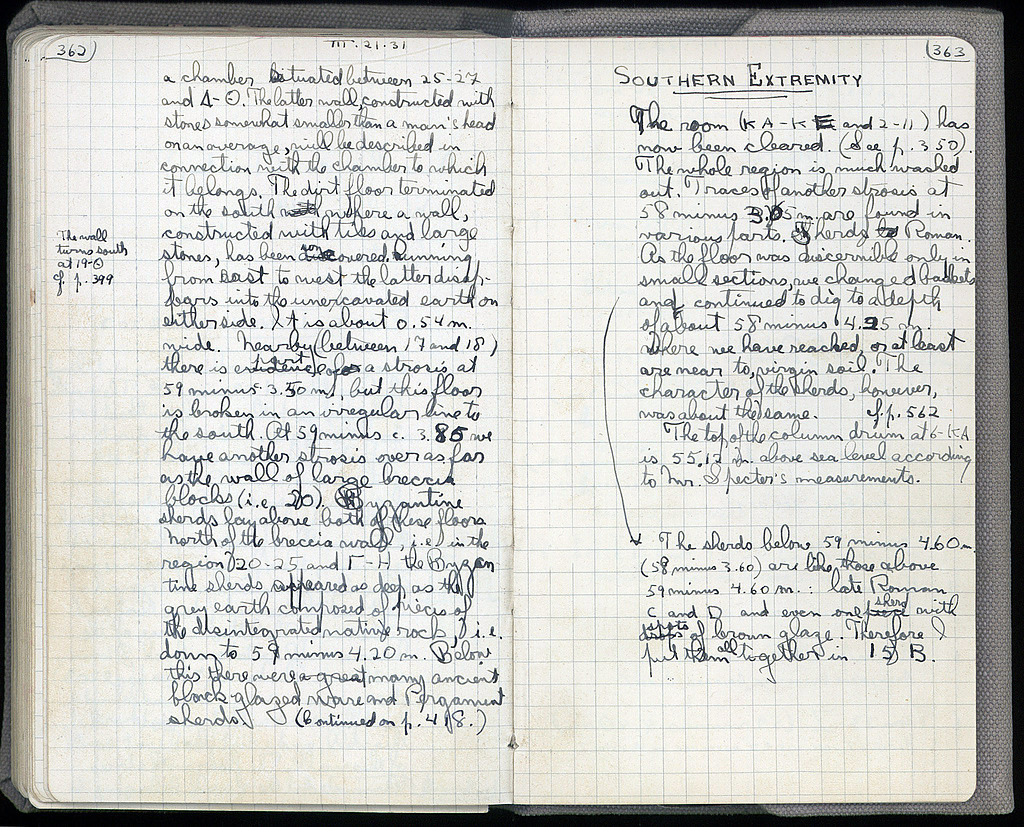 362
III.21.31
a chamber situated between 25-27
and Δ-Θ. The latter wall, constructed with
stones somewhat smaller than a man's head
on an average, will be described in
connection with the chamber to which
it belongs. The dirt floor terminated
on the south where a wall,
constructed with tiles and large
stones, has been uncovered running
from east to west the latter disap-
pears into the unexcavated earth on
either side. It is about 0.54 m.
wide. Nearby (between 17 and 18)
there is part of a strosis at
59 minus 3.50 m., but this floor
is broken in an irregular line to
the south. At 59 minus c. 3.85 we
have another strosis over as far
as the wall of large breccia
blocks (i.e. 20). Byzantine
sherds lay above both of these floors
North of the breccia wall, i.e. in the
region 20-25 and Γ-H the Byzan
tine sherds appeared as deep as the
grey earth composed of pieces of
the disintegrated native rock, i.e.
down to 59 minus 4.20 m. Below
this there were a great many ancient
black-glazed ware and Pergamene
sherds. (Continued on p. 418.)
The wall
turns south
at 19-Θ
cf. p. 399
363
SOUTHERN EXTREMITY
The room (KA-KE and 2-11) has
now been cleared. (See p. 350).
The whole region is much washed
out. Traces of another strosis at
58 minus 3.05 m. are found in
various parts. Sherds to Roman.
As the floor was discernible only in
small sections, we changed baskets
and continued to dig to a depth
of about 58 minus 4.35 m.
where we have reached, or at least
are near to, virgin soil. The
character of the sherds, however,
was about the same. cf. p. 562
The top of the column drum at 6-KA
is 55.12 m. above sea level according
to Mr. Spector's measurements.
The sherds below 59 minus 4.60 m.
(58 minus 3.60) are like those above
59 minus 4.60 m.: late Roman
C and D and even one sherd with
spots of brown glaze. Therefore I
put them all together in 15 B.